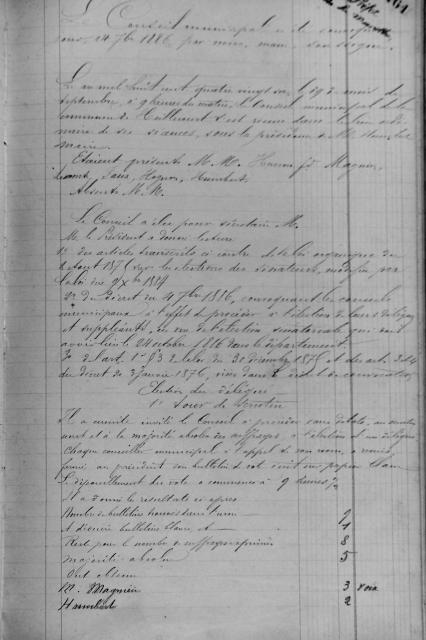 Le Conseil municipal a été convoqué
24 7bre 1886, par nous, maire, soussigné.
L'an mil huit cent quatre vingt six, le 19 mois de
septembre, à 9 heures du matin, le Conseil municipal de la
commune de s'est réuni dans le lieu ordi
naire de ses séances, sous la présidence de Mr Humbert
maire.
Etaient présents M. M. Magnien,
Humbert.
Absents M. M.
Le Conseil a élu pour secrétaire M.
M. le Président a donné lecture
1º des articles transcrits ci contre de la loi organique du
2 Aout 187 sur les élections des sénateurs, modifiée par
la loi du 9 Xbre 1884
2º du Décret du 4 7bre 1886, convoquant les conseils
municipaux à l'effet de procéder à l'élection de leurs délégués
et suppléants, en vue de l'élection sénatoriale qui doit
avoir lieu le 24 octobre 1886 dans le département.
3º l'art. 1er § 3 de la loi du 30 décembre 1875 et des art. 3 & 4
du décret du 3 Janvier 1876, visés dans le décret de convocation
Election du délégué
1er Tour de Scrutin
Il a ensuite invité le Conseil à procéder sans débats, au scrutin
secret et à la majorité absolue des suffrages, à l'élection d'un délégué
Chaque conseiller municipal à l'appel de son nom, a remis
fermé au président son bulletin de vote écrit sur papier blanc
Le dépouillement du vote a commencé à 9 heures 1/2
Il a donné le résultat ci après
Nombre de bulletins trouvés dans l'urne 9
A déduire bulletins blancs, et 1
Reste pour le nombre de suffrages exprimés 8
majorité absolue 5
Ont obtenu
M. Magnien 3 voix
Humbert 2